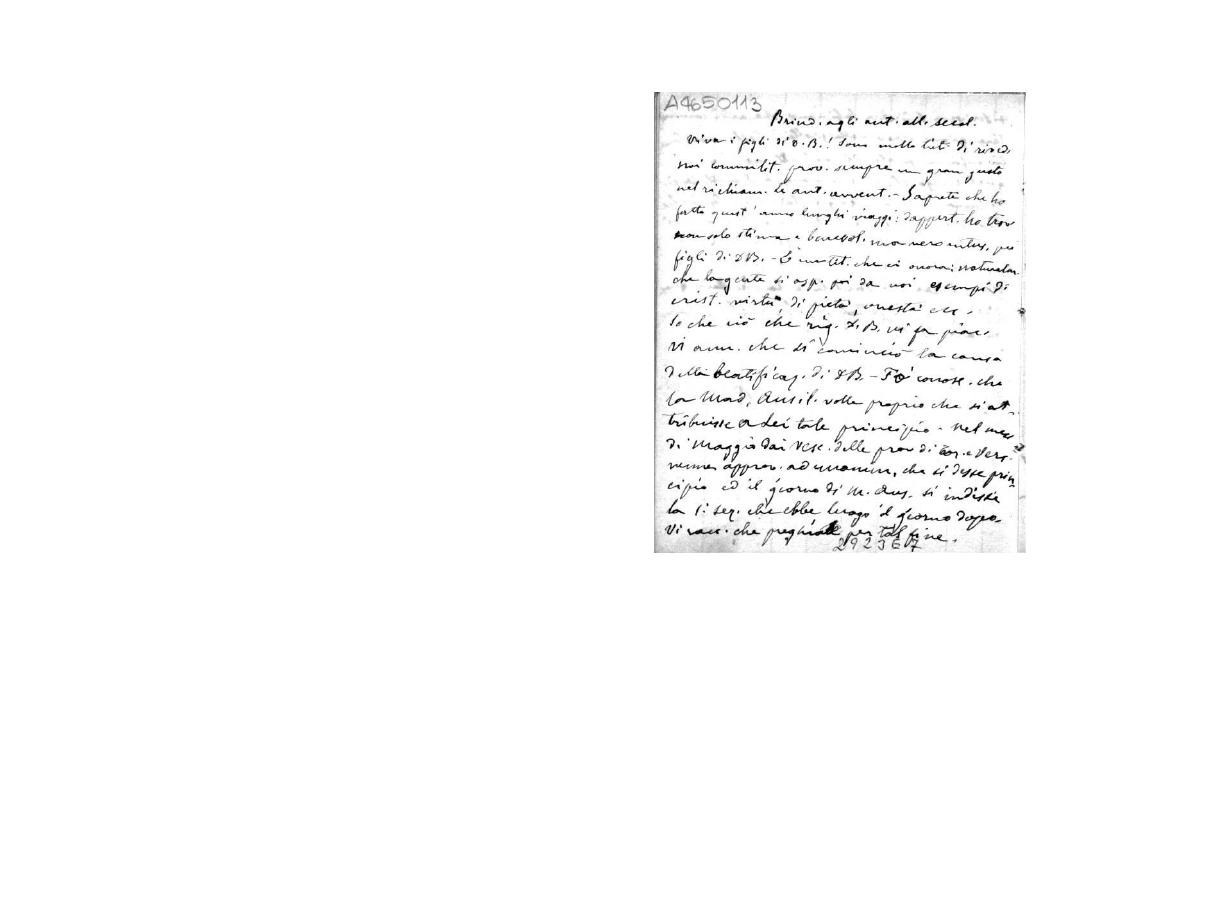 A4650113
Brind. agli ant. all. secol.
Viva i figli di D. B.! Sono molto liet. di rived.
noi commilit. prov. sempre un gran gusto
nel richiam. le ant. avvent. - Sapete che ho
fatto quest'anno lunghi viaggi: dappert. ho trov
non solo stima e benevol. ma vero entus. pei
figli di D B. - È un tit. che ci onora; naturalm.
che la gente si asp. poi da noi esempi di
crist. virtù, di pietà, onestà ecc.
So che ciò che rig. D. B. vi fa piac.
Vi ann. che si cominciò la causa
della beatificaz. di D B. - Fo' conosc. che
la Mad. Ausil. volle proprio che si at-
tribuisse a Lei tale principio - Nel mese
di Maggio dai Vesc. delle prov di Tor. e Verc.
venne approv. ad unanim. che si desse prin-
cipio ed il giorno di M. Aus. si indisse
la 1: sez. che ebbe luogo il giorno dopo.
Vi racc. che preghiate per tal fine.
292367